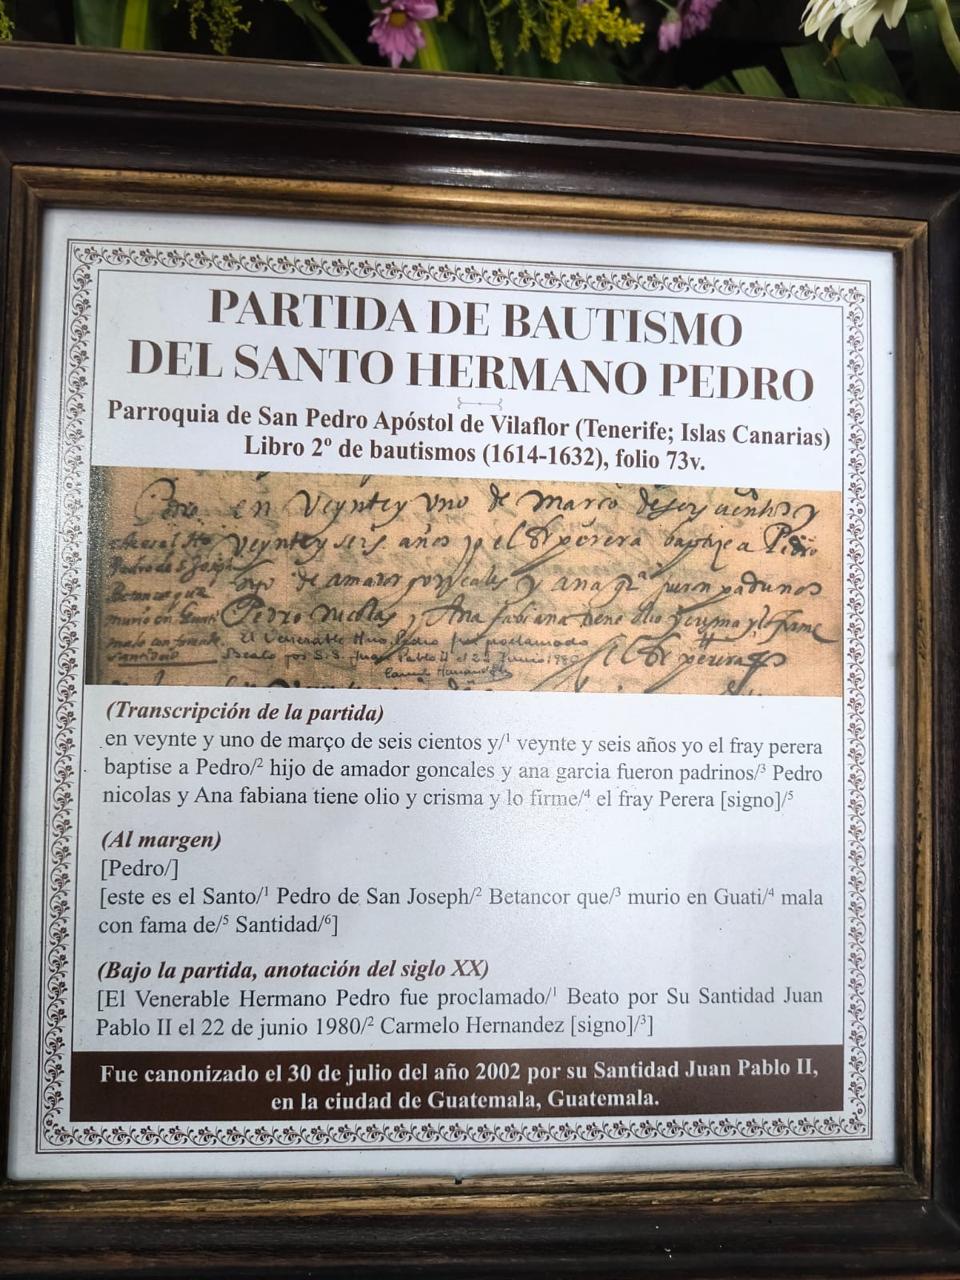 PARTIDA DE BAUTISMO
DEL SANTO HERMANO PEDRO
Parroquia de San Pedro Apóstol de Vilaflor (Tenerife; Islas Canarias)
Libro 2º de bautismos (1614-1632), folio 73v.
en Veynte y Uno de Março de seys cientos y
Veynte y seis años yo el fr perera baptize a Pedro
hijo de amador gonçales y ana ga fueron padrinos
Pedro Nicolas y Ana fabiana tiene olio y crisma y lo firme
el fr perera
este es el Sto
Pedro de S. Joseph
Betancor que
murio en Guati
mala con fama de
santidad
El Venerable Hno Pedro fue proclamado
Beato por S.S. Juan Pablo II el 22 Junio 1980
(Transcripción de la partida)
en veynte y uno de março de seis cientos y/¹ veynte y seis años yo el fray perera
baptise a Pedro/² hijo de amador goncales y ana garcia fueron padrinos/³ Pedro
nicolas y Ana fabiana tiene olio y crisma y lo firme/⁴ el fray Perera [signo]/⁵
(Al margen)
[Pedro/]
[este es el Santo/¹ Pedro de San Joseph/² Betancor que/³ murio en Guati/⁴ mala
con fama de/⁵ Santidad/⁶]
(Bajo la partida, anotación del siglo XX)
[El Venerable Hermano Pedro fue proclamado/¹ Beato por Su Santidad Juan
Pablo II el 22 de junio 1980/² Carmelo Hernandez [signo]/³]
Fue canonizado el 30 de julio del año 2002 por su Santidad Juan Pablo II,
en la ciudad de Guatemala, Guatemala.